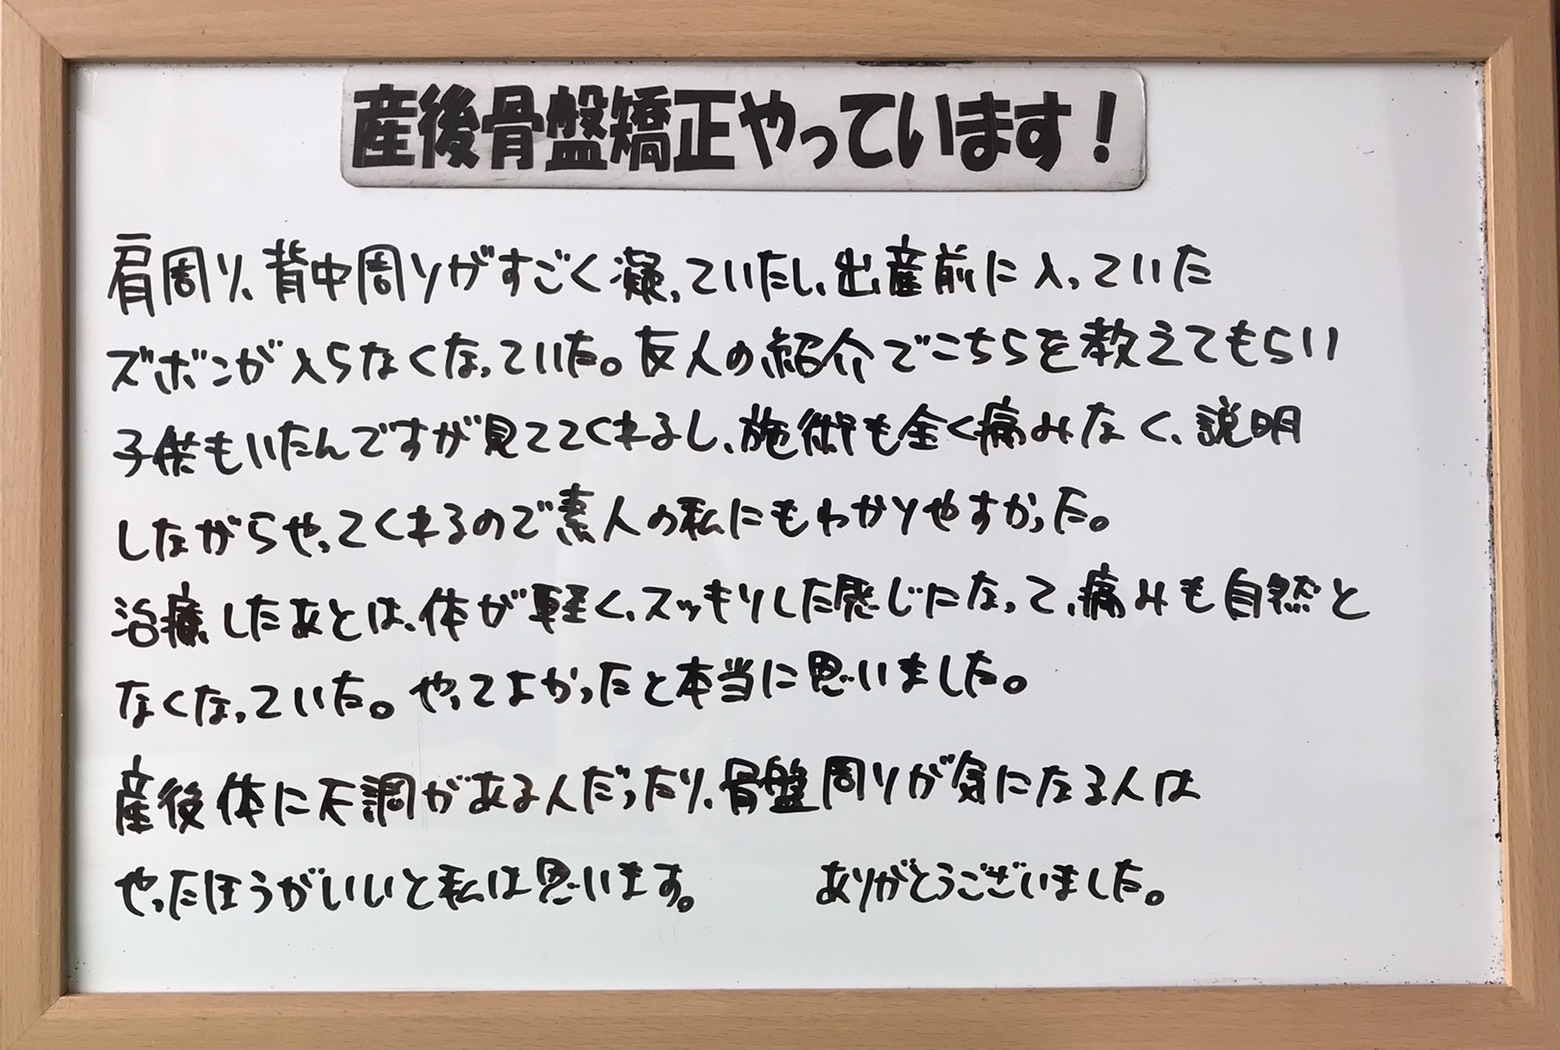 産後骨盤矯正やっています！
肩周り、背中周りがすごく凝っていたし、出産前に入っていた
ズボンが入らなくなっていた。友人の紹介でこちらを教えてもらい
子供もいたんですが見ててくれるし、施術も全く痛みなく、説明
しながらやってくれるので素人の私にもわかりやすかった。
治療したあとは、体が軽く、スッキリした感じになって、痛みも自然と
なくなっていた。やってよかったと本当に思いました。
産後体に不調がある人だったり、骨盤周りが気になる人は
やったほうがいいと私は思います。　ありがとうございました。